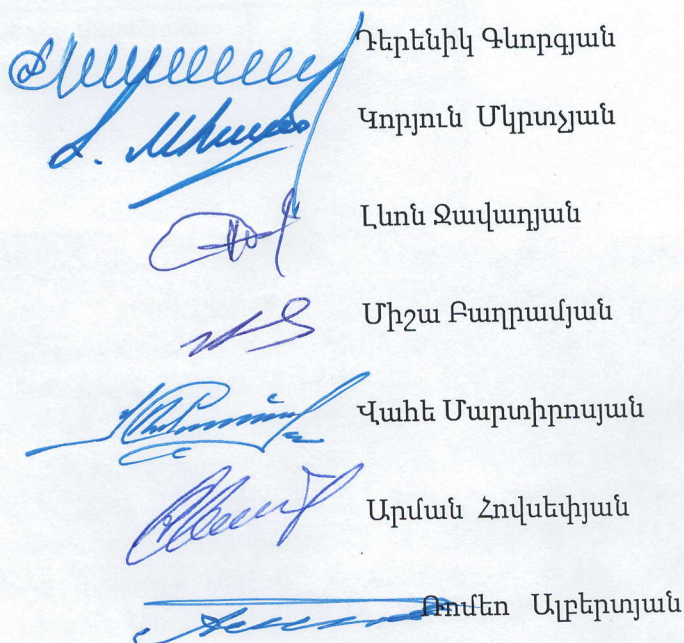 Դերենիկ Գևորգյան
Կորյուն Մկրտչյան
Լևոն Ջավադյան
Միշա Բաղրամյան
Վահե Մարտիրոսյան
Արման Հովսեփյան
Ռոմեո Ալբերտյան